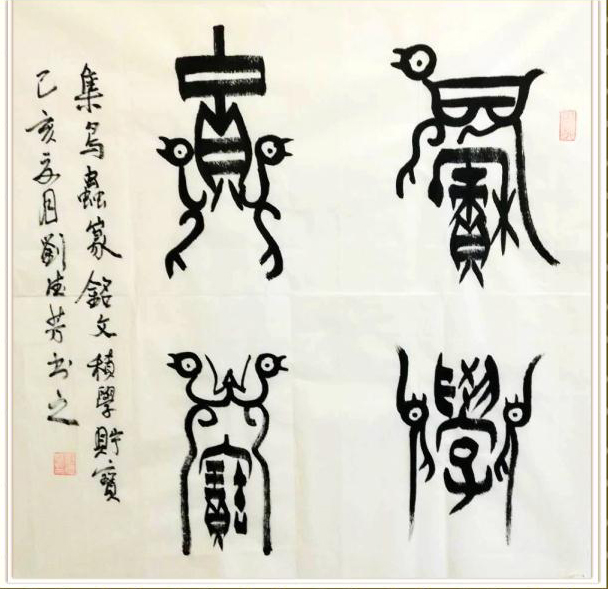 積學
貯寶
集鳥蟲篆銘文積學貯寶
己亥夏月劉芳书之